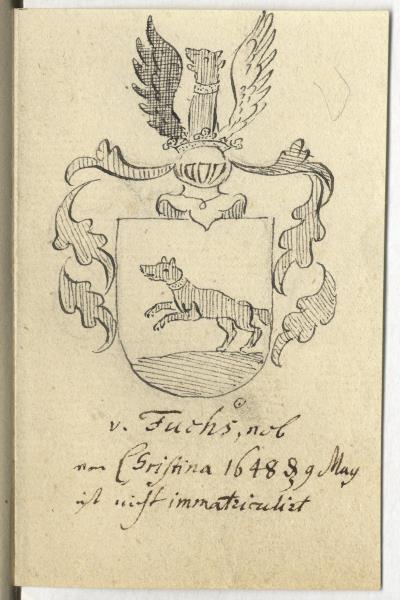 v. Fuchs, nob
von Christina 1648 d 9 May
ist nicht immatriculirt